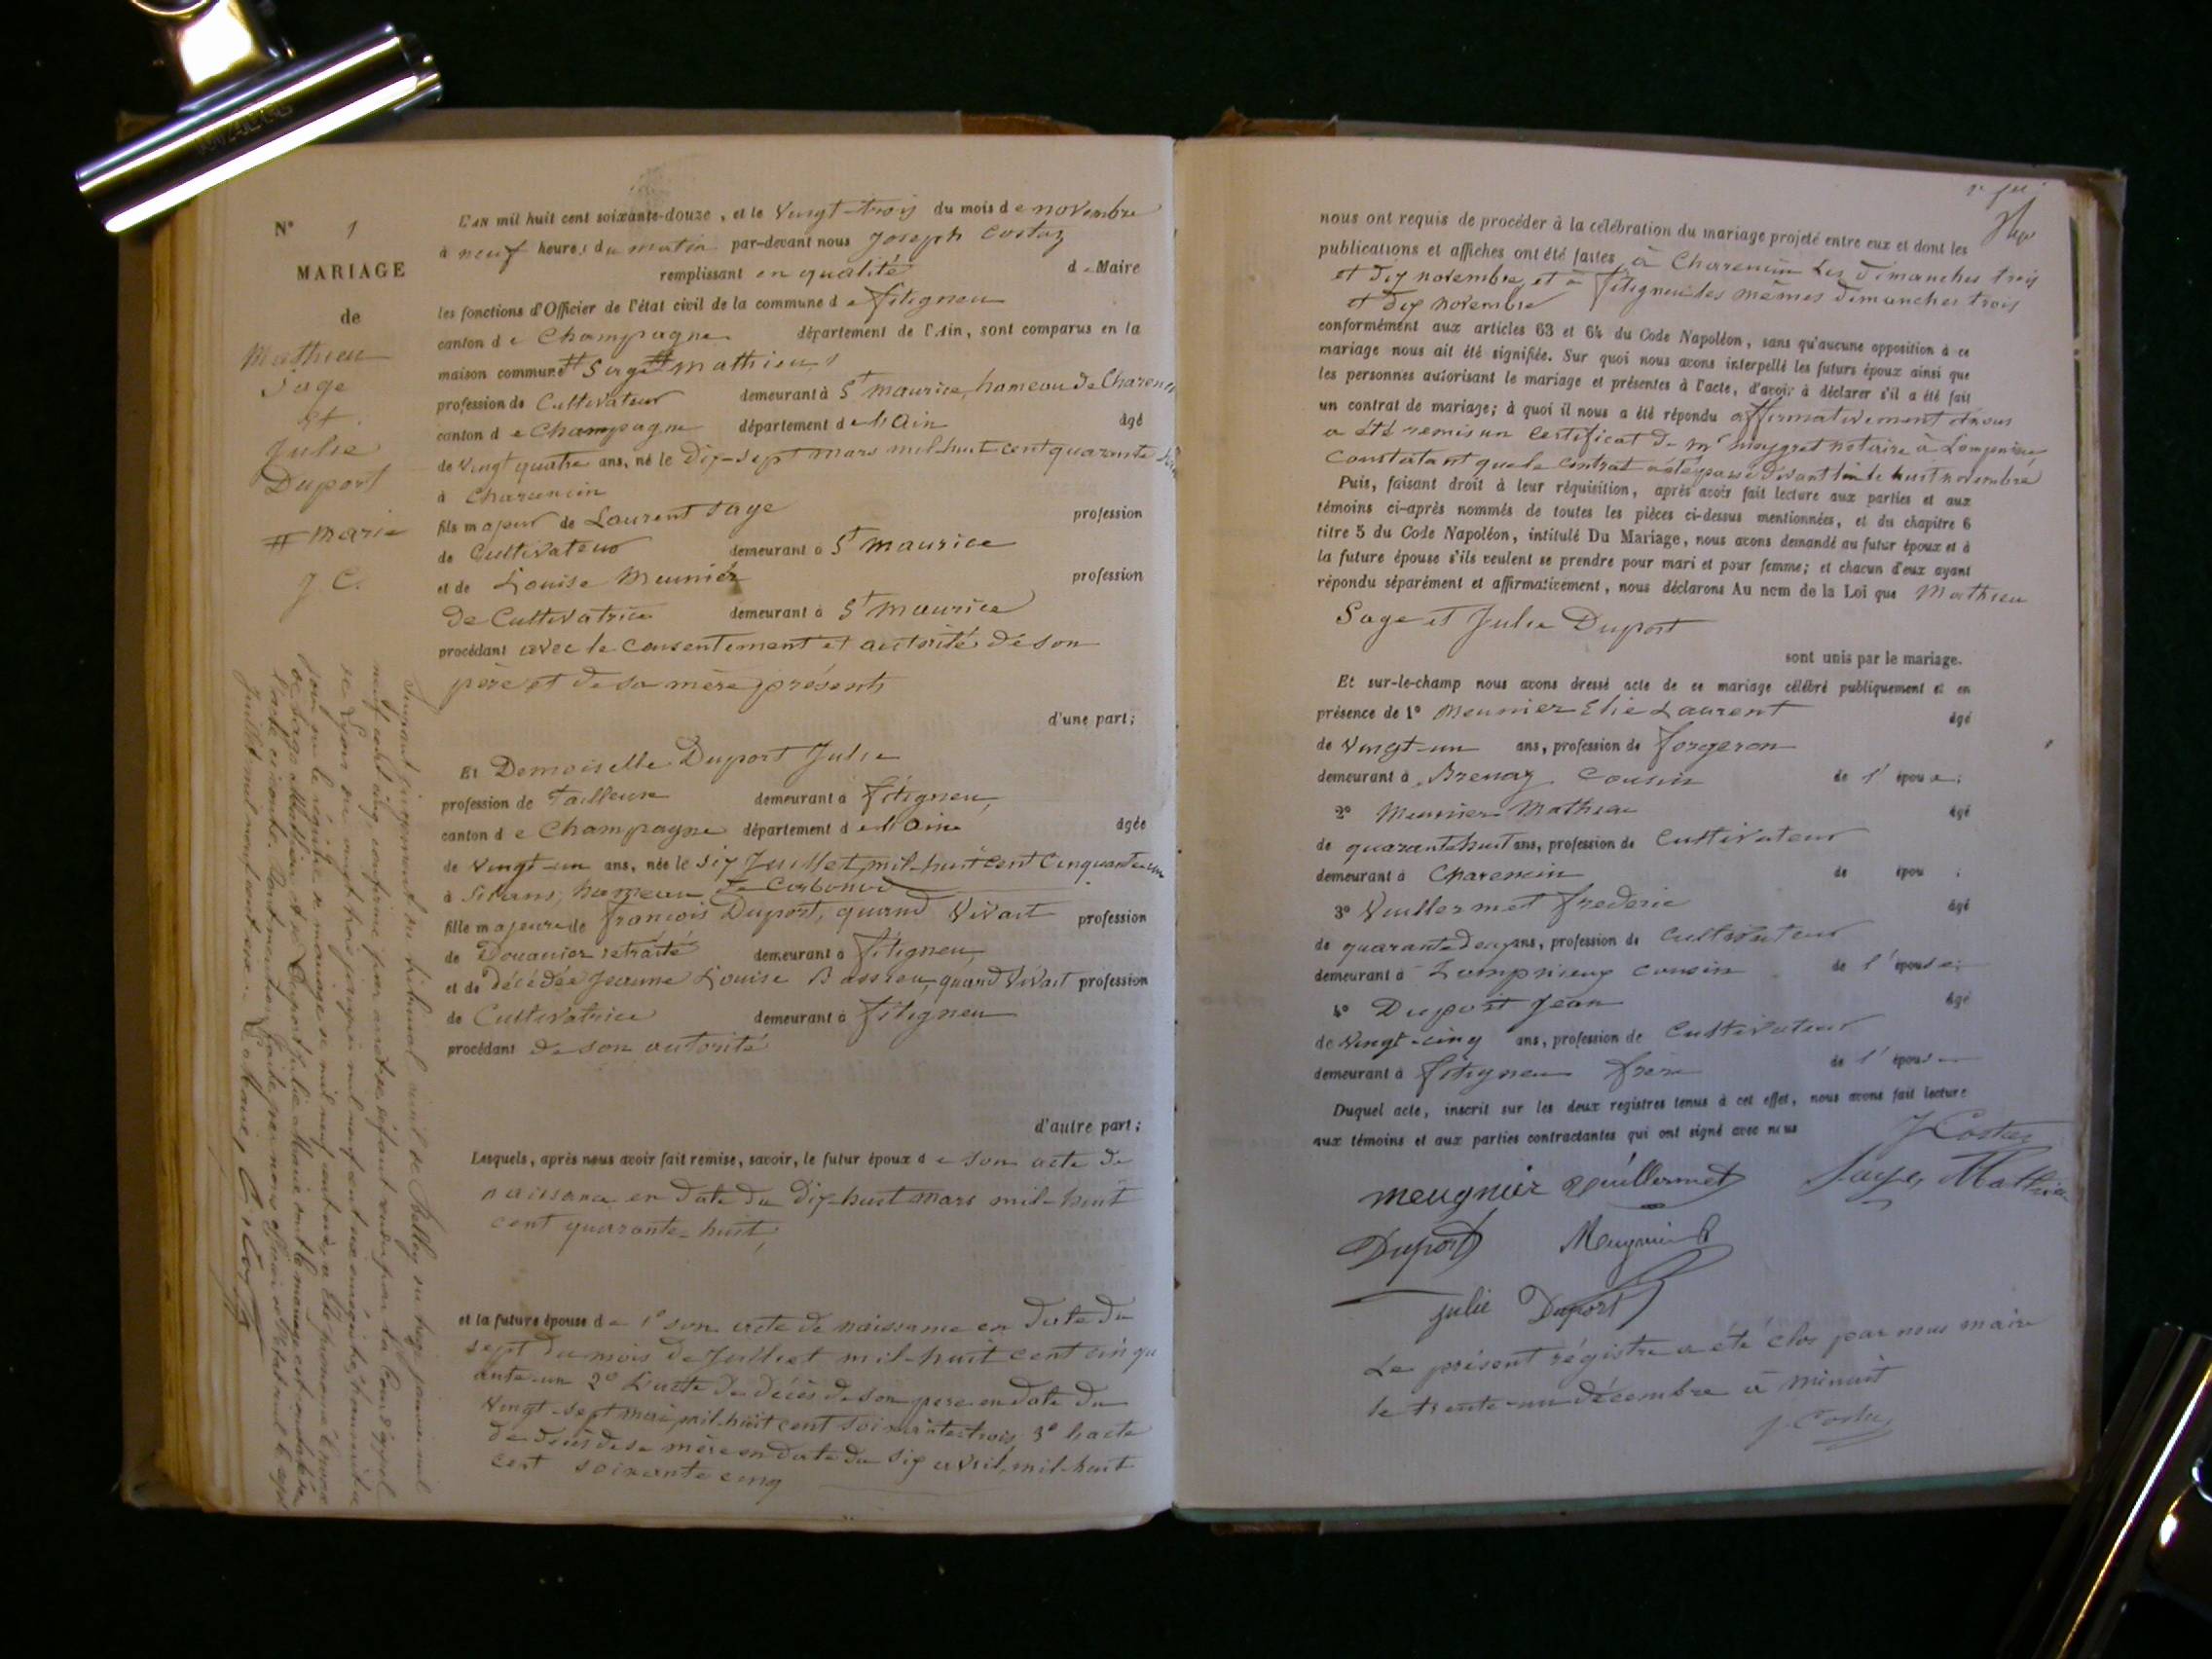 N° 1
MARIAGE
de
Mathieu
Sage
Et
Julie
Duport
# Marie
J C.
L'AN mil huit cent soixante-douze, et le Vingt-trois du mois de novembre
à neuf heures du matin par-devant nous Joseph Costaz
remplissant en qualité de Maire
les fonctions d'Officier de l'état civil de la commune de fitigneu
canton de Champagne département de l'Ain, sont comparus en la
maison commune mathieu
profession de Cultivateur demeurant à St maurice, hameau de Charencin
canton de Champagne département de l'Ain âgé
de Vingt quatre ans, né le Dix-sept mars mil-huit cent quarante
à Charencin
fils majeur de Laurent Sage profession
de Cultivateur demeurant à St maurice
et de Louise Meunier profession
De Cultivatrice demeurant à St maurice
procédant avec le consentement et autorité de son
père et de sa mère présents
d'une part;
Et Demoiselle Duport Julie
profession de Tailleuse demeurant à fitigneu,
canton de Champagne département de l'Ain âgée
de Vingt-un ans, née le Six Juillet, mil-huit cent Cinquante un
à Silans, hameau de Corbonod
fille majeure de francois Duport, quand Vivait profession
de Douanier retraité demeurant à fitigneu,
et de décédée Jeanne Louise Bassieu, quand Vivait profession
de Cultivatrice demeurant à fitigneu
procédant de son autorité
d'autre part;
Lesquels, après nous avoir fait remise, savoir, le futur époux de son acte de
naissance en Date du Dix-huit mars mil-huit
cent quarante-huit,
et la future épouse de 1° son acte de naissance en Date du
sept du mois de Juillet mil-huit cent cinqu
ante-un 2° L'acte de décès de son pere en date du
Vingt-sept mai, mil-huit cent soixante-trois 3° l'acte
de décès de sa mère en date du six avril, mil-huit
cent soixante cinq
Suivant jugement du tribunal civil de Belley du treize janvier mil
neuf cent cinq, confirmé par arrêt se défaut rendu par la Cour d'appel
de Lyon du vingt trois
jour sur le régistre de mariage de mil neuf cent
de Sage Mathieu et de Duport Julie Marie
l'acte ci-contre. Dont mention faite par nous officier de l'état civil le sept
Juillet mil neuf cent six. Le Maire,
nous ont requis de procéder à la célébration du mariage projeté entre eux et dont les
publications et affiches ont été faites à Charencin Les Dimanches trois
et dix novembre, et à fitigneu les mêmes Dimanches trois
et dix novembre
conformément aux articles 63 et 64 du Code Napoléon, sans qu'aucune opposition à ce
mariage nous ait été signifiée. Sur quoi nous avons interpellé les futurs époux ainsi que
les personnes autorisant le mariage et présentes à l'acte, d'avoir à déclarer s'il a été fait
un contrat de mariage; à quoi il nous a été répondu affirmativement et nous
a été remis un Certificat de mr notaire à Lompnieu,
Constatant que le contrat a été passé devant lui le huit novembre
Puis, faisant droit à leur réquisition, après avoir fait lecture aux parties et aux
témoins ci-après nommés de toutes les pièces ci-dessus mentionnées, et du chapitre 6
titre 5 du Code Napoléon, intitulé Du Mariage, nous avons demandé au futur époux et à
la future épouse s'ils veulent se prendre pour mari et pour femme; et chacun d'eux ayant
répondu séparément et affirmativement, nous déclarons Au nom de la Loi que Mathieu
Sage et Julie Duport
sont unis par le mariage.
Et sur-le-champ nous avons dressé acte de ce mariage célébré publiquement et en
présence de 1° Meunier Elie Laurent âgé
de Vingt-un ans, profession de forgeron
demeurant à Brenaz Cousin de l'époux;
2° Meunier Mathieu âgé
de quarante huit ans, profession de Cultivateur
demeurant à Charencin de épou ;
3° Vuillermet frederic âgé
de quarante deux ans, profession de Cultivateur
demeurant à Lompnieux cousin de l'épouse;
4° Duport Jean âgé
de Vingt-cinq ans, profession de Cultivateur
demeurant à fitigneu frère de l'épouse
Duquel acte, inscrit sur les deux registres tenus à cet effet, nous avons fait lecture
aux témoins et aux parties contractantes qui ont signé avec nous
J Costaz
meugnier Vuillermet Sage Mathieu
Duport Meugnier
julie Duport
Le présent régistre a été clos par nous maire
le trente-un décembre à minuit
J. Costaz